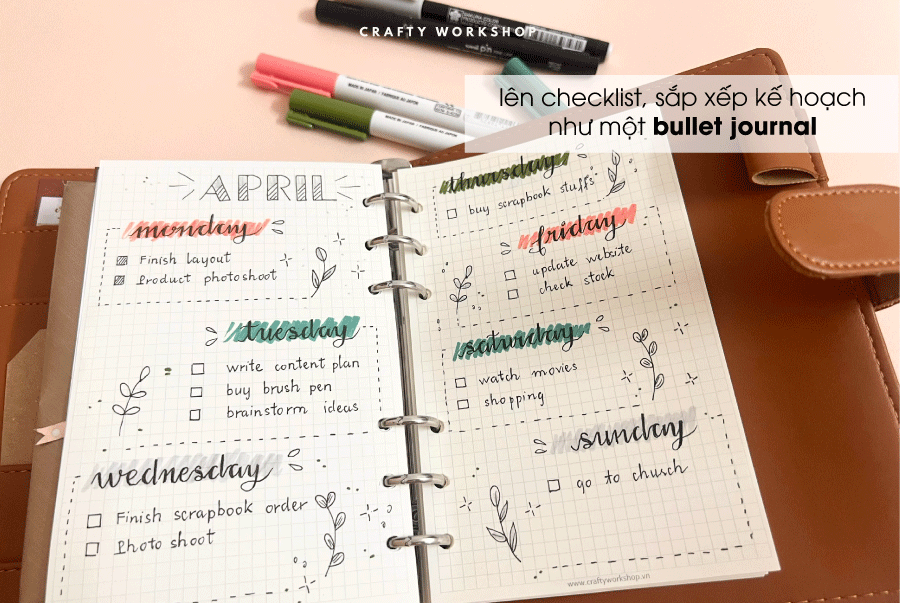 CRAFTY WORKSHOP
lên checklist, sắp xếp kế hoạch
như một bullet journal
APRIL
monday
Finish layout
Product photoshoot
tuesday
write content plan
buy brush pen
brainstorm ideas
wednesday
Finish scrapbook order
Photo shoot
thursday
buy scrapbook stuffs
friday
update website
check stock
saturday
watch movies
shopping
sunday
go to church
www.craftyworkshop.vn